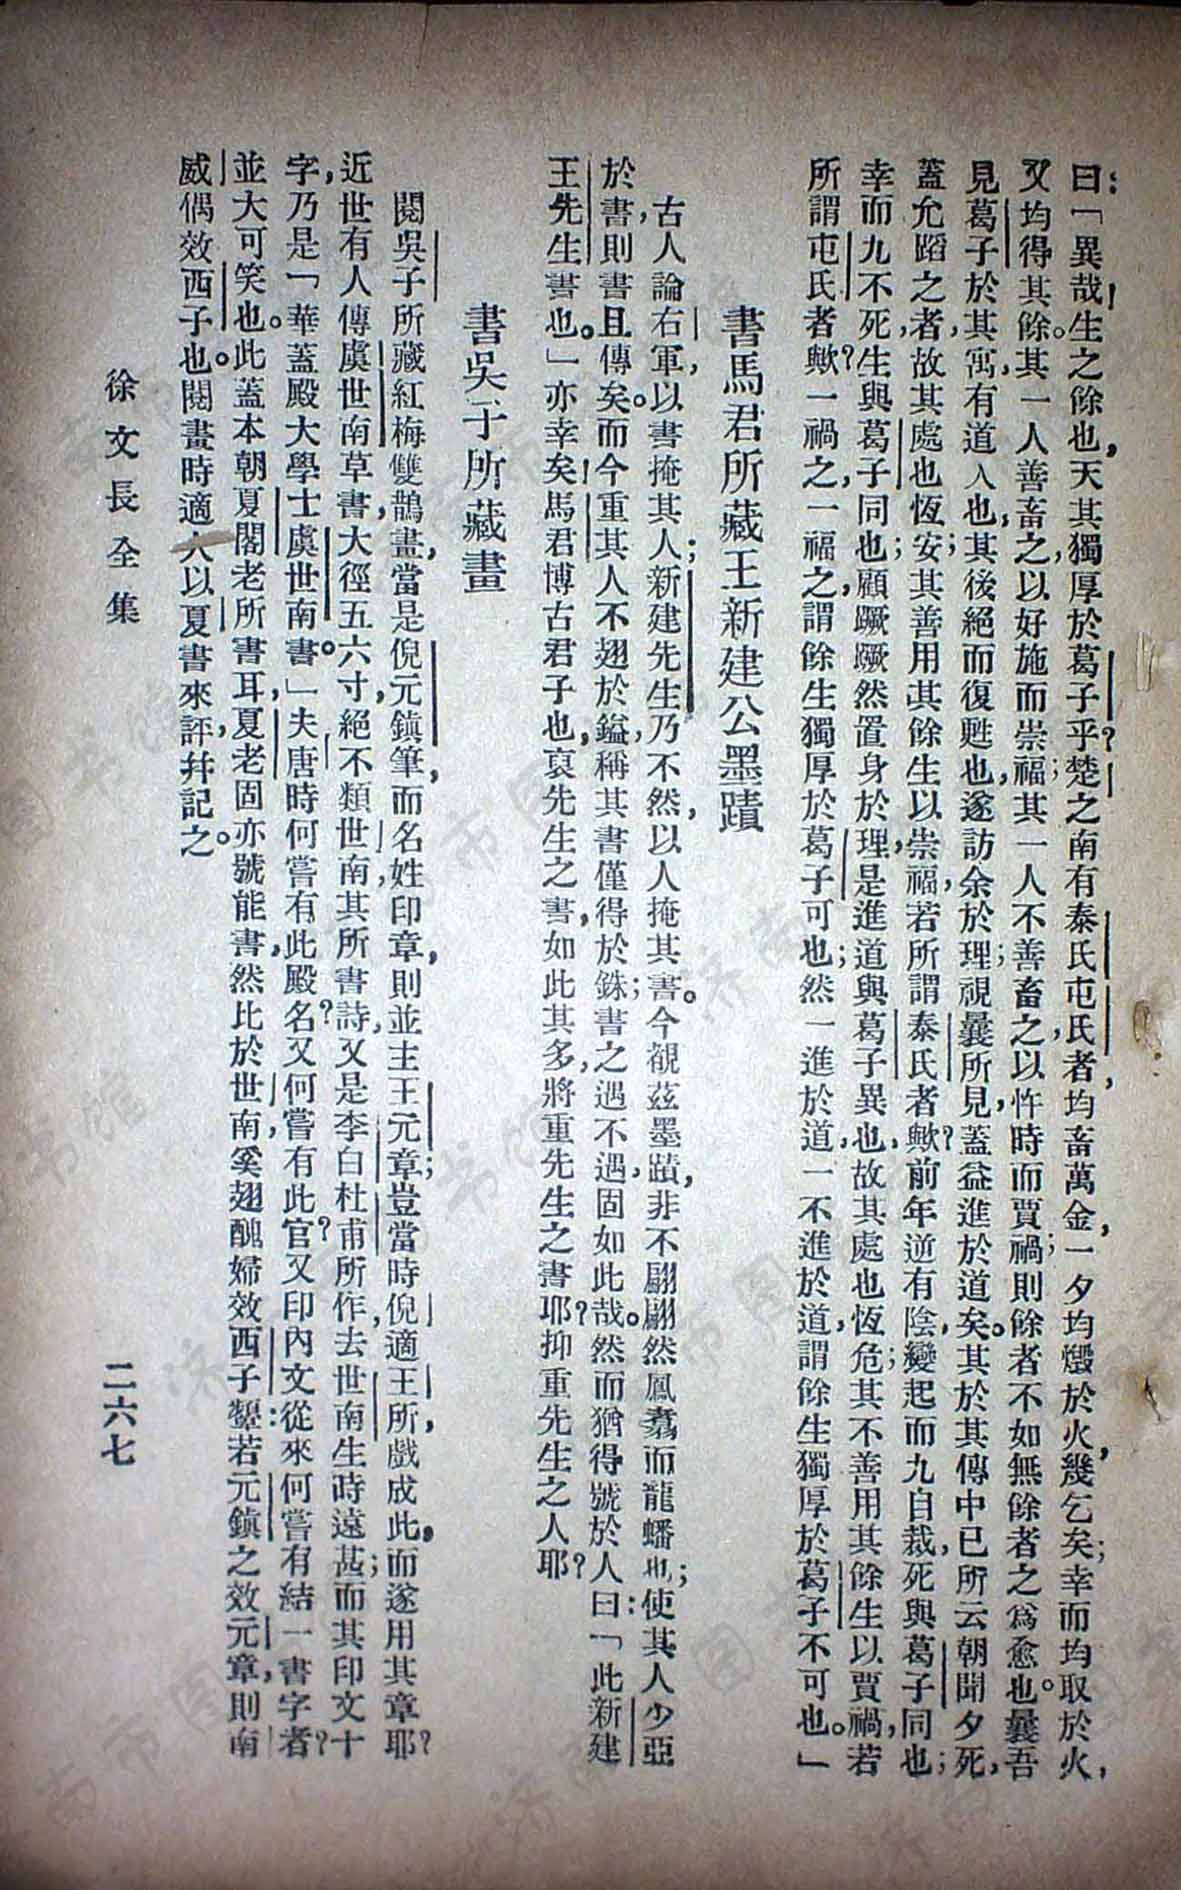 曰：「異哉！生之餘也，天其獨厚於葛子乎？楚之南有泰氏屯氏者，均畜萬金，一夕均燬於火，幾乞矣；幸而均取於火，
又均得其餘。其一人善畜之，以好施而崇福；其一人不善畜之，以忤時而賈禍；則餘者不如無餘者之爲愈也。曩吾
見葛子於其寓，有道人也，其後絕而復甦也，遂訪余於理；視曩所見，蓋益進於道矣。其於其傳中已所云朝聞夕死，
蓋允蹈之者，故其處也恆安；其善用其餘生以崇福，若所謂泰氏者歟？前年逆有陰變起，而九自裁，死與葛子同也；
幸而九不死，生與葛子同也，顧蹶蹶然置身於理，是進道與葛子異也，故其處也恆危；其不善用其餘生以賈禍，若
所謂屯氏者歟？一禍之，一福之，謂餘生獨厚於葛子可也；然一進於道，一不進於道，謂餘生獨厚於葛子不可也。」
書馬君所藏王新建公墨蹟
古人論右軍，以書掩其人；新建先生乃不然，以人掩其書。今覩茲墨蹟，非不翩翩然鳳翥而龍蟠也；使其人少亞
於書，則書且傳矣。而今重其人不翅於鎰，稱其書僅得於銖；書之遇不遇，固如此哉。然而猶得號於人曰：「此新建
王先生書也。」亦幸矣！馬君博古君子也，裒先生之書，如此其多，將重先生之書耶？抑重先生之人耶？
書吳子所藏畫
閱吳子所藏紅梅雙鵲畫，當是倪元鎭筆，而名姓印章，則並主王元章；豈當時倪適王所，戲成此，而遂用其章耶？
近世有人傳虞世南草書，大徑五六寸，絕不類世南，其所書詩，又是李白杜甫所作，去世南生時遠甚；而其印文十
字，乃是「華蓋殿大學士虞世南書。」夫唐時何嘗有此殿名？又何嘗有此官？又印內文從來何嘗有結一書字者？
並大可笑也。此蓋本朝夏閣老所書耳，夏老固亦號能書，然比於世南，奚翅醜婦效西子顰：若元鎭之效元章，則南
威偶效西子也。閱畫時適人以夏書來評，幷記之。
徐文長全集
二六七